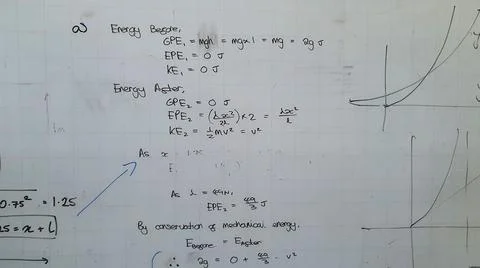 a) Energy Before:
GPE₁ = mgh = mg×1 = mg = 2g J
EPE₁ = 0 J
KE₁ = 0 J
Energy After:
GPE₂ = 0 J
EPE₂ = (λx²/2l)×2 = λx²/l
KE₂ = ½mv² = v²
1m
As x
E
0.75² = 1.25
As λ = 49N,
EPE₂ = 49/3 J
25 = x + l
By conservation of mechanical energy,
E Before = E After
∴ 2g = 0 + 49/3 - v²